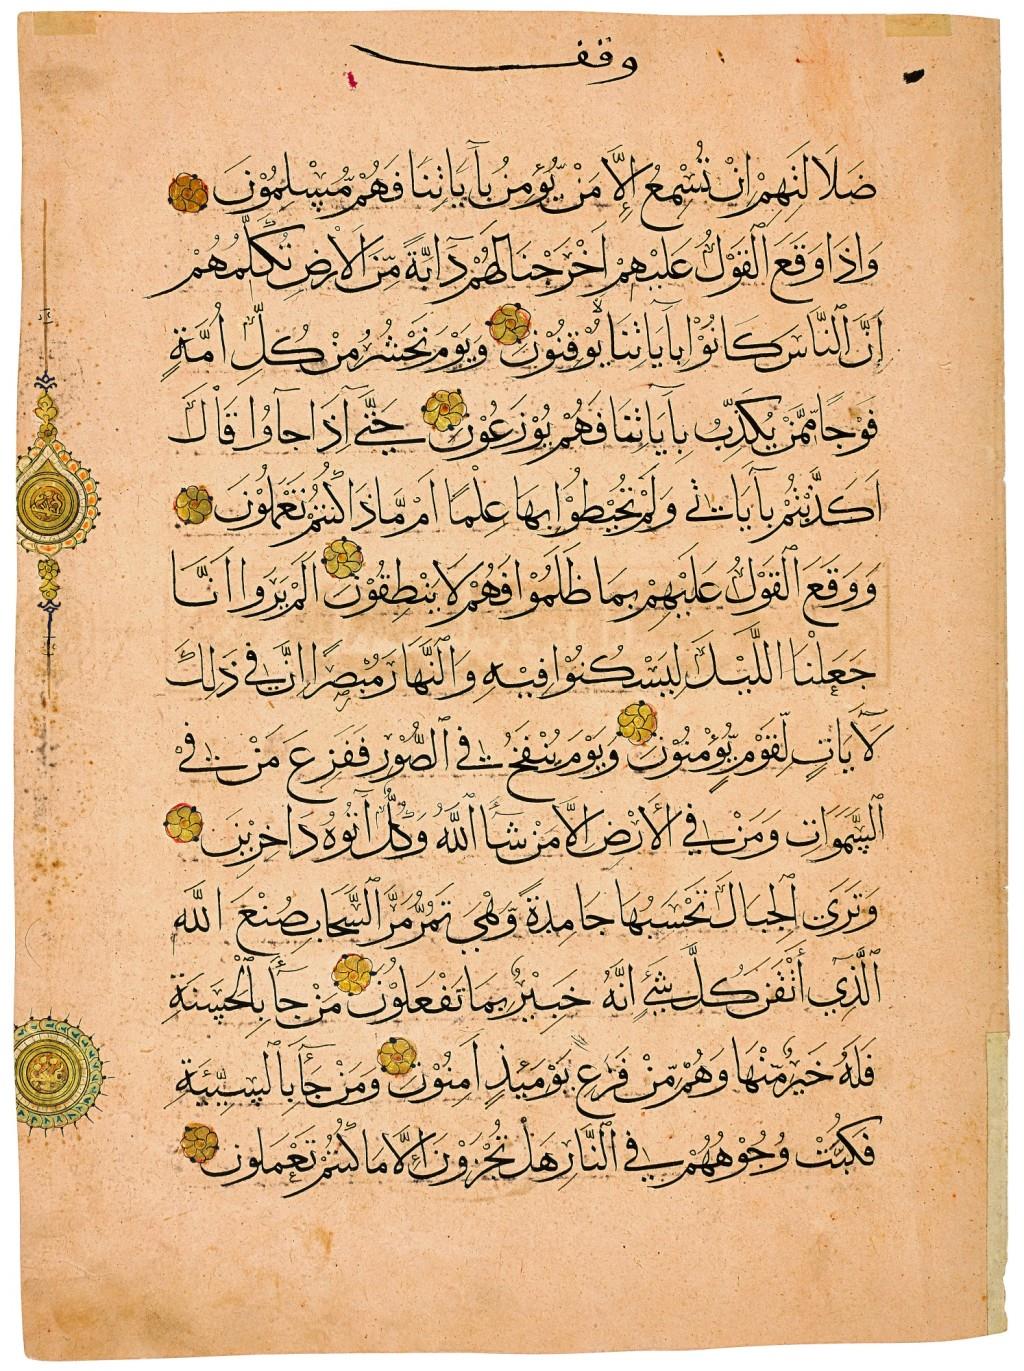 وقف
ضَلَالَتِهِمْ اِنْ تُسْمِعُ اِلَّا مَنْ يُّؤْمِنُ بِآيَاتِنَا فَهُمْ مُّسْلِمُوْنَ
وَاِذَا وَقَعَ الْقَوْلُ عَلَيْهِمْ اَخْرَجْنَا لَهُمْ دَآبَّةً مِّنَ الْاَرْضِ تُكَلِّمُهُمْ
اَنَّ النَّاسَ كَانُوْا بِآيَاتِنَا لَا يُوْقِنُوْنَ وَيَوْمَ نَحْشُرُ مِنْ كُلِّ اُمَّةٍ
فَوْجًا مِّمَّنْ يُكَذِّبُ بِآيَاتِنَا فَهُمْ يُوْزَعُوْنَ حَتّٰى اِذَا جَآوُا قَالَ
اَكَذَّبْتُمْ بِآيَاتِي وَلَمْ تُحِيْطُوْا بِهَا عِلْمًا اَمْ مَّاذَا كُنْتُمْ تَعْمَلُوْنَ
وَوَقَعَ الْقَوْلُ عَلَيْهِمْ بِمَا ظَلَمُوْا فَهُمْ لَا يَنْطِقُوْنَ اَلَمْ يَرَوْا اَنَّا
جَعَلْنَا اللَّيْلَ لِيَسْكُنُوْا فِيْهِ وَالنَّهَارَ مُبْصِرًا اِنَّ فِي ذَلِكَ
لَآيَاتٍ لِّقَوْمٍ يُّؤْمِنُوْنَ وَيَوْمَ يُنْفَخُ فِي الصُّوْرِ فَفَزِعَ مَنْ فِي
السَّمَوَاتِ وَمَنْ فِي الْاَرْضِ اِلَّا مَنْ شَآ اللّٰهُ وَكُلٌّ اَتَوْهُ دَاخِرِيْنَ
وَتَرَى الْجِبَالَ تَحْسَبُهَا جَامِدَةً وَّهْيَ تَمُرُّ مَرَّ السَّحَابِ صُنْعَ اللّٰهِ
الَّذِي أَتْقَنَ كُلَّ شَيْءٍ اِنَّهُ خَبِيْرٌ بِمَا تَفْعَلُوْنَ مَنْ جَآَ بِالْحَسَنَةِ
فَلَهُ خَيْرٌ مِّنْهَا وَهُمْ مِّنْ فَزَعٍ يَوْمَئِذٍ اٰمِنُوْنَ وَمَنْ جَآَ بِالسَّيِّئَةِ
فَكُبَّتْ وُجُوْهُهُمْ فِي النَّارِ هَلْ تُجْزَوْنَ اِلَّا مَا كُنْتُمْ تَعْمَلُوْنَ